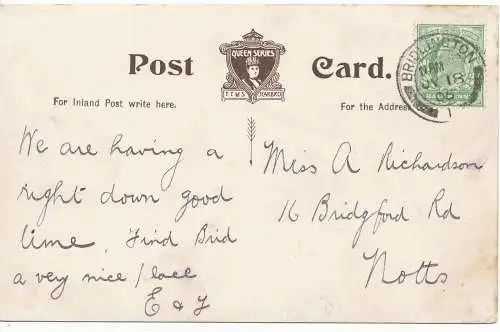 Post Card.
QUEEN SERIES
T.T.M.S. SCARBORO
For Inland Post write here.
For the Address
BRIDLINGTON
18
We are having a
right down good
time. Find Brid
a very nice place
E & J
Miss A Richardson
16 Bridgford Rd
Notts